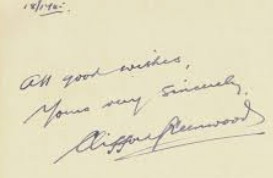 All good wishes,
Yours very Sincerely,
Clifford Greenwood